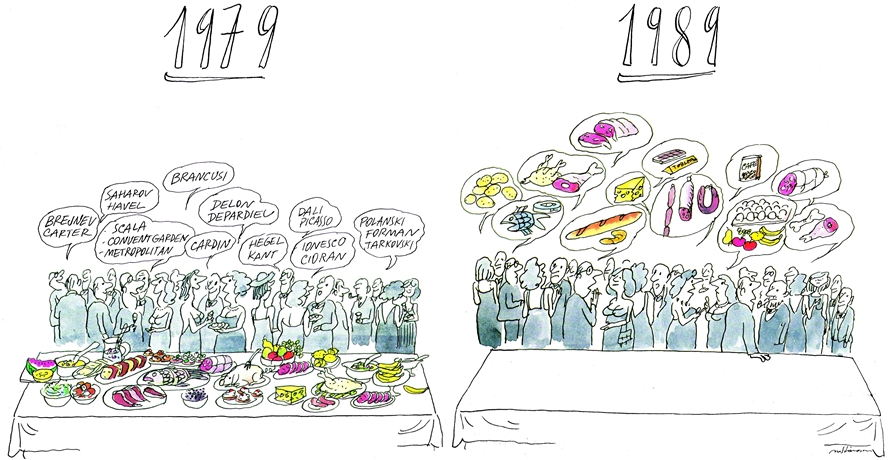 1979
1989
BRANCUSI
SAHAROV
HAVEL
BREJNEV
CARTER
· SCALA
· CONVENTGARDEN
- METROPOLITAN
DELON
DEPARDIEU
CARDIN
HEGEL
KANT
DALI
PICASSO
IONESCO
CIORAN
POLANSKI
FORMAN
TARKOVSKI
CAFÉ